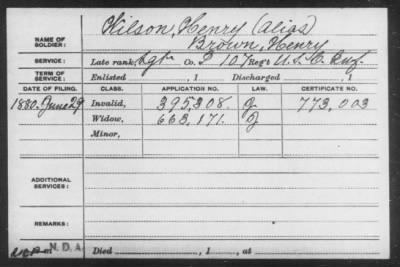 NAME OF SOLDIER: Wilson, Henry (alias)
Brown, Henry
SERVICE: Late rank, Sgt Co. D 107 Reg't U.S.C. Inf.
TERM OF SERVICE: Enlisted , 1 Discharged , 1
DATE OF FILING. CLASS. APPLICATION NO. LAW. CERTIFICATE NO.
1880. June 29 Invalid, 395,308. G 773,003
Widow, 663,171. J
Minor,
ADDITIONAL SERVICES:
REMARKS:
N.D.A. Died , 1 , at